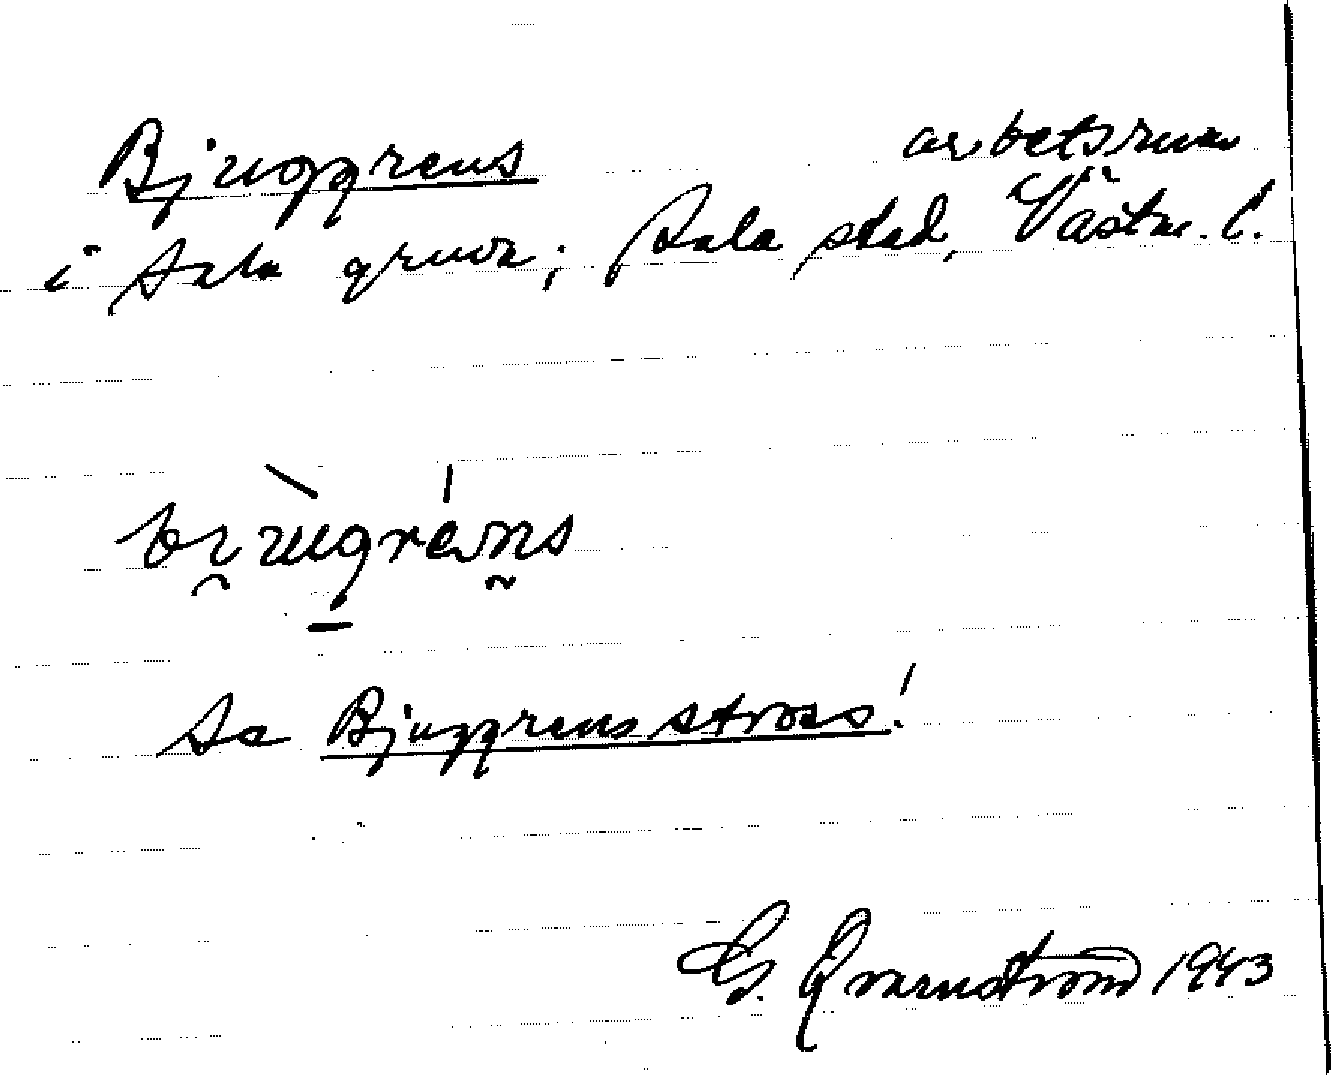 Bjuggrens arbetsrum
i Sala gruva; Sala stad, Västm. l.
Se Bjuggrens stross!
G. Qvarnström 1943